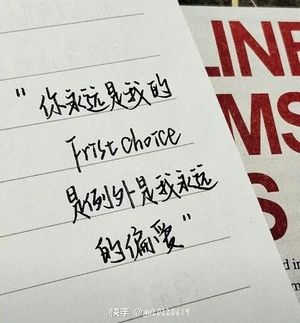 "你永远是我的
Frist choice
是例外是我永远
的偏爱"
LINE
MS
S
快手 @gu20220619